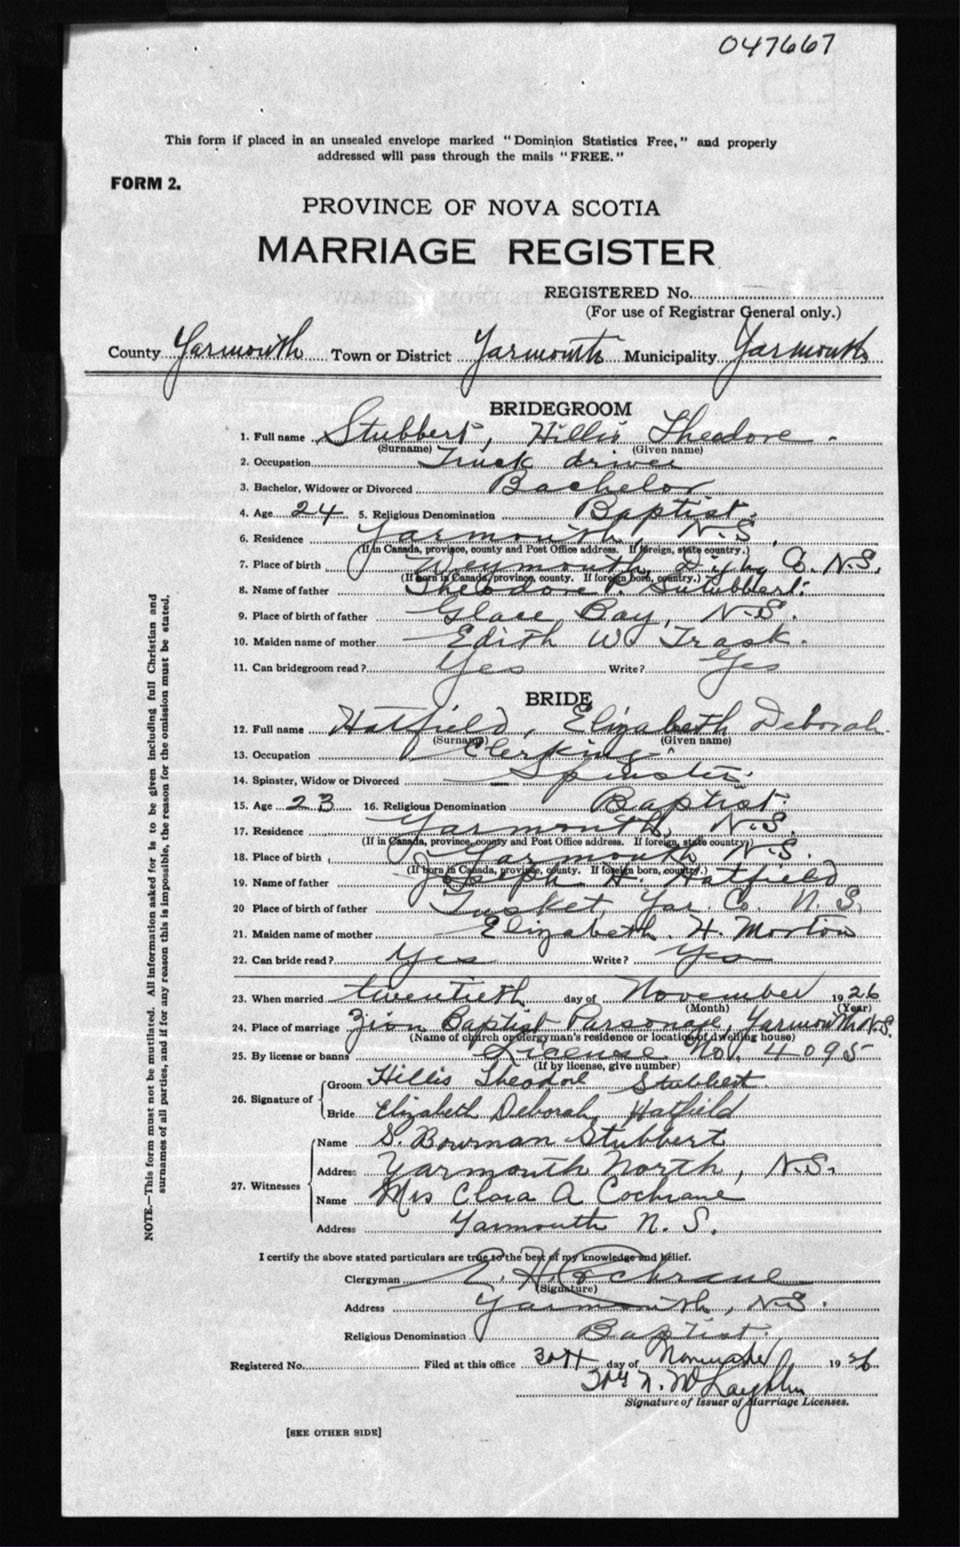 047667
This form if placed in an unsealed envelope marked "Dominion Statistics Free," and properly
addressed will pass through the mails "FREE."
FORM 2.
PROVINCE OF NOVA SCOTIA
MARRIAGE REGISTER
REGISTERED No.
(For use of Registrar General only.)
County Yarmouth Town or District Yarmouth Municipality Yarmouth
BRIDEGROOM
1. Full name Stubbert, Hillis Theodore
(Surname) (Given name)
2. Occupation Truck driver
3. Bachelor, Widower or Divorced Bachelor
4. Age 24 5. Religious Denomination Baptist
6. Residence Yarmouth, N.S.
(If in Canada, province, county and Post Office address. If foreign, state country.)
7. Place of birth Weymouth, Digby Co. N.S.
(If born in Canada, province, county. If foreign born, country.)
8. Name of father Theodore P. Stubbert
9. Place of birth of father Glace Bay, N.S.
10. Maiden name of mother Edith W. Trask
11. Can bridegroom read? Yes Write? Yes
BRIDE
12. Full name Hatfield, Elizabeth Deborah
(Surname) (Given name)
13. Occupation Clerking
14. Spinster, Widow or Divorced Spinster
15. Age 23 16. Religious Denomination Baptist
17. Residence Yarmouth, N.S.
(If in Canada, province, county and Post Office address. If foreign, state country.)
18. Place of birth Yarmouth N.S.
(If born in Canada, province, county. If foreign born, country.)
19. Name of father Joseph H. Hatfield
20 Place of birth of father Tusket, Yar. Co. N.S.
21. Maiden name of mother Elizabeth H. Morton
22. Can bride read? Yes Write? Yes
23. When married twentieth day of November 1926
(Month) (Year)
24. Place of marriage Zion Baptist Parsonage, Yarmouth N.S.
(Name of church or clergyman's residence or location of dwelling house)
25. By license or banns License No. 4095
(If by license, give number)
26. Signature of Groom Hillis Theodore Stubbert
Bride Elizabeth Deborah Hatfield
27. Witnesses Name S. Bowman Stubbert
Address Yarmouth North, N.S.
Name Mrs Clara A Cochrane
Address Yarmouth N. S.
I certify the above stated particulars are true to the best of my knowledge and belief.
Clergyman E. H. Cochrane
(Signature)
Address Yarmouth, N.S.
Religious Denomination Baptist
Registered No. Filed at this office 30th day of November 1926
N. McLaughlin
Signature of Issuer of Marriage Licenses.
[SEE OTHER SIDE]
NOTE.—This form must not be mutilated. All information asked for is to be given including full Christian and
surnames of all parties, and if for any reason this is impossible, the reason for the omission must be stated.